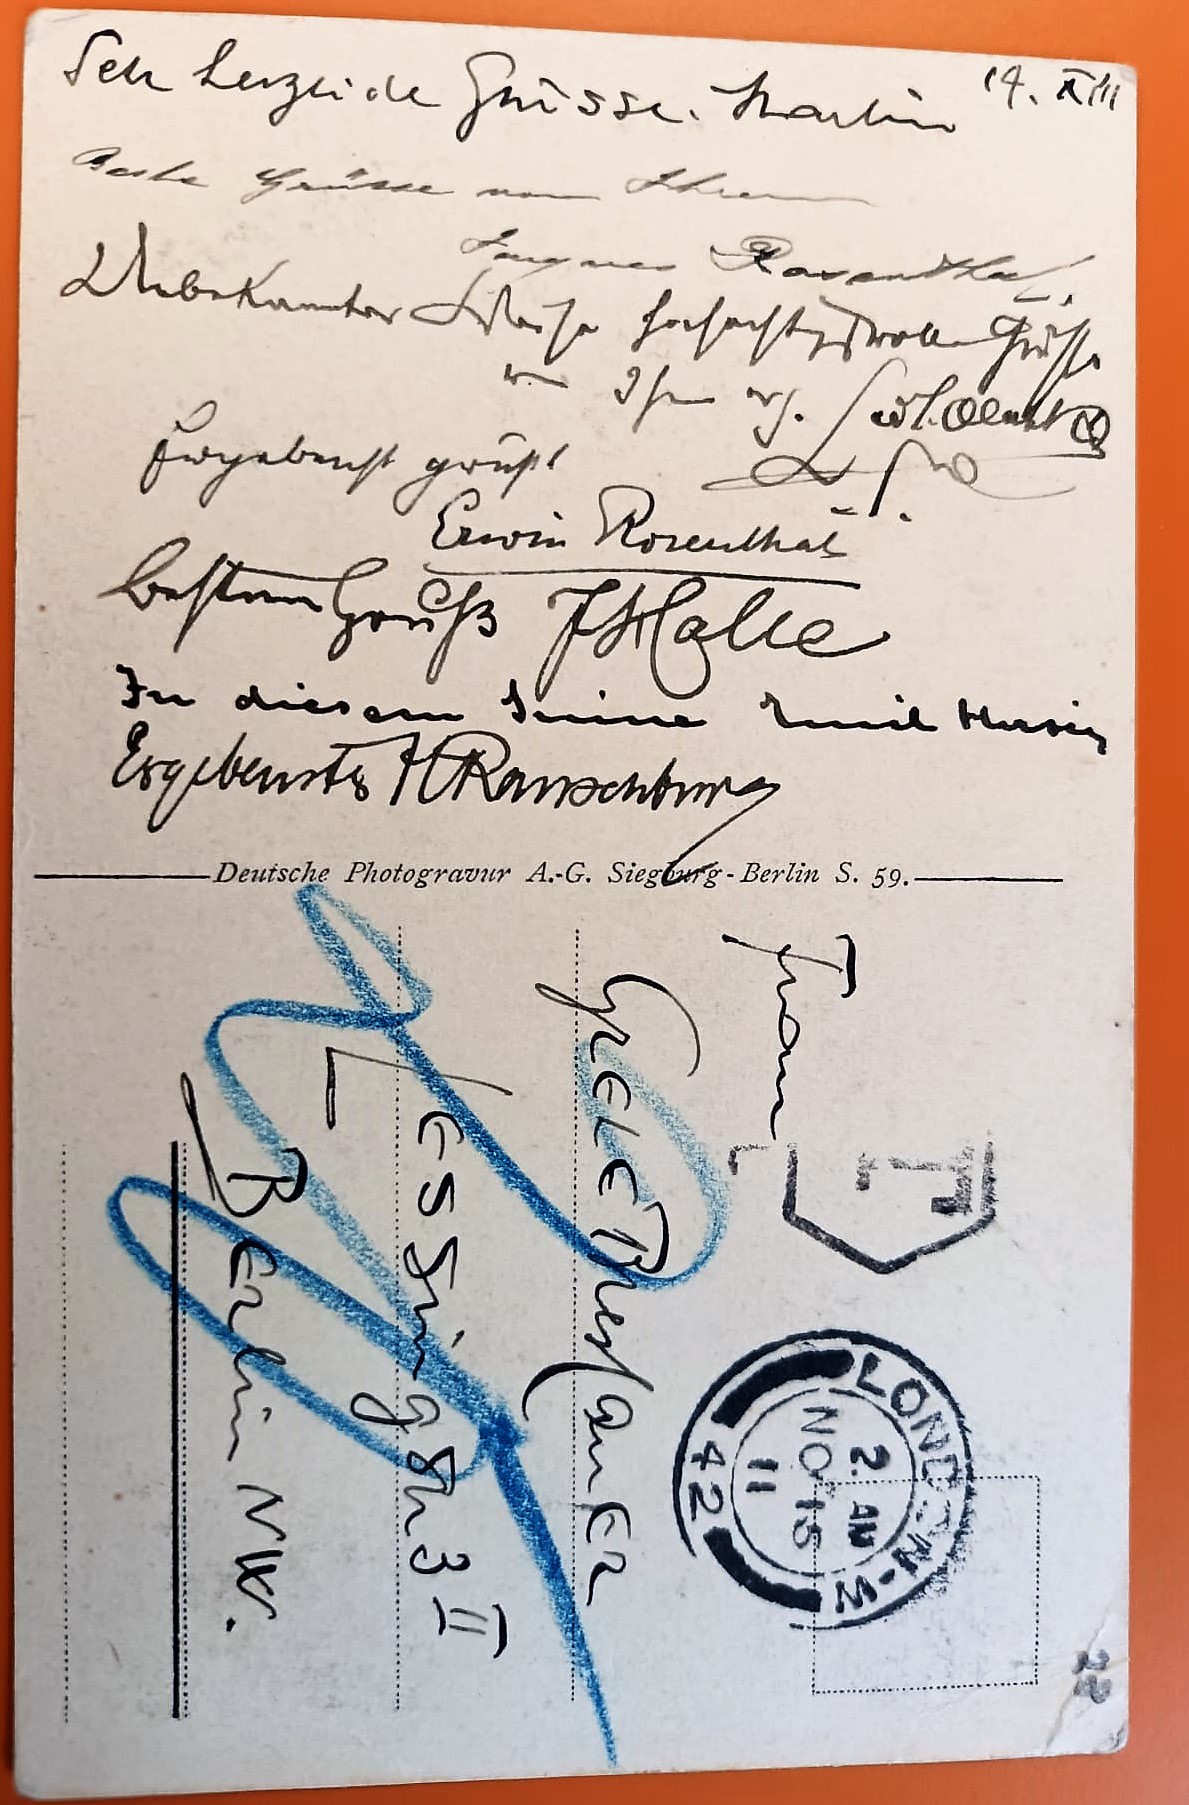 Sehr herzliche Grüsse. Martin 14. XIII
Beste Grüsse von Ihrem
Jacques Rosenthal.
Unbekannter Weise hochachtungsvolle Grüße
von Ihrem erg.
Ergebenst grüßt
Erwin Rosenthal
Besten Gruß J Halle
In diesem Sinne Emil Hirsch
Ergebenster H Ranschburg
Deutsche Photogravur A.-G. Siegburg-Berlin S. 59.
Frau
Grete Breslauer
Lessingstr 3 II
Berlin NW.
T
LONDON-N-W
2. AM
NO 15
11
42